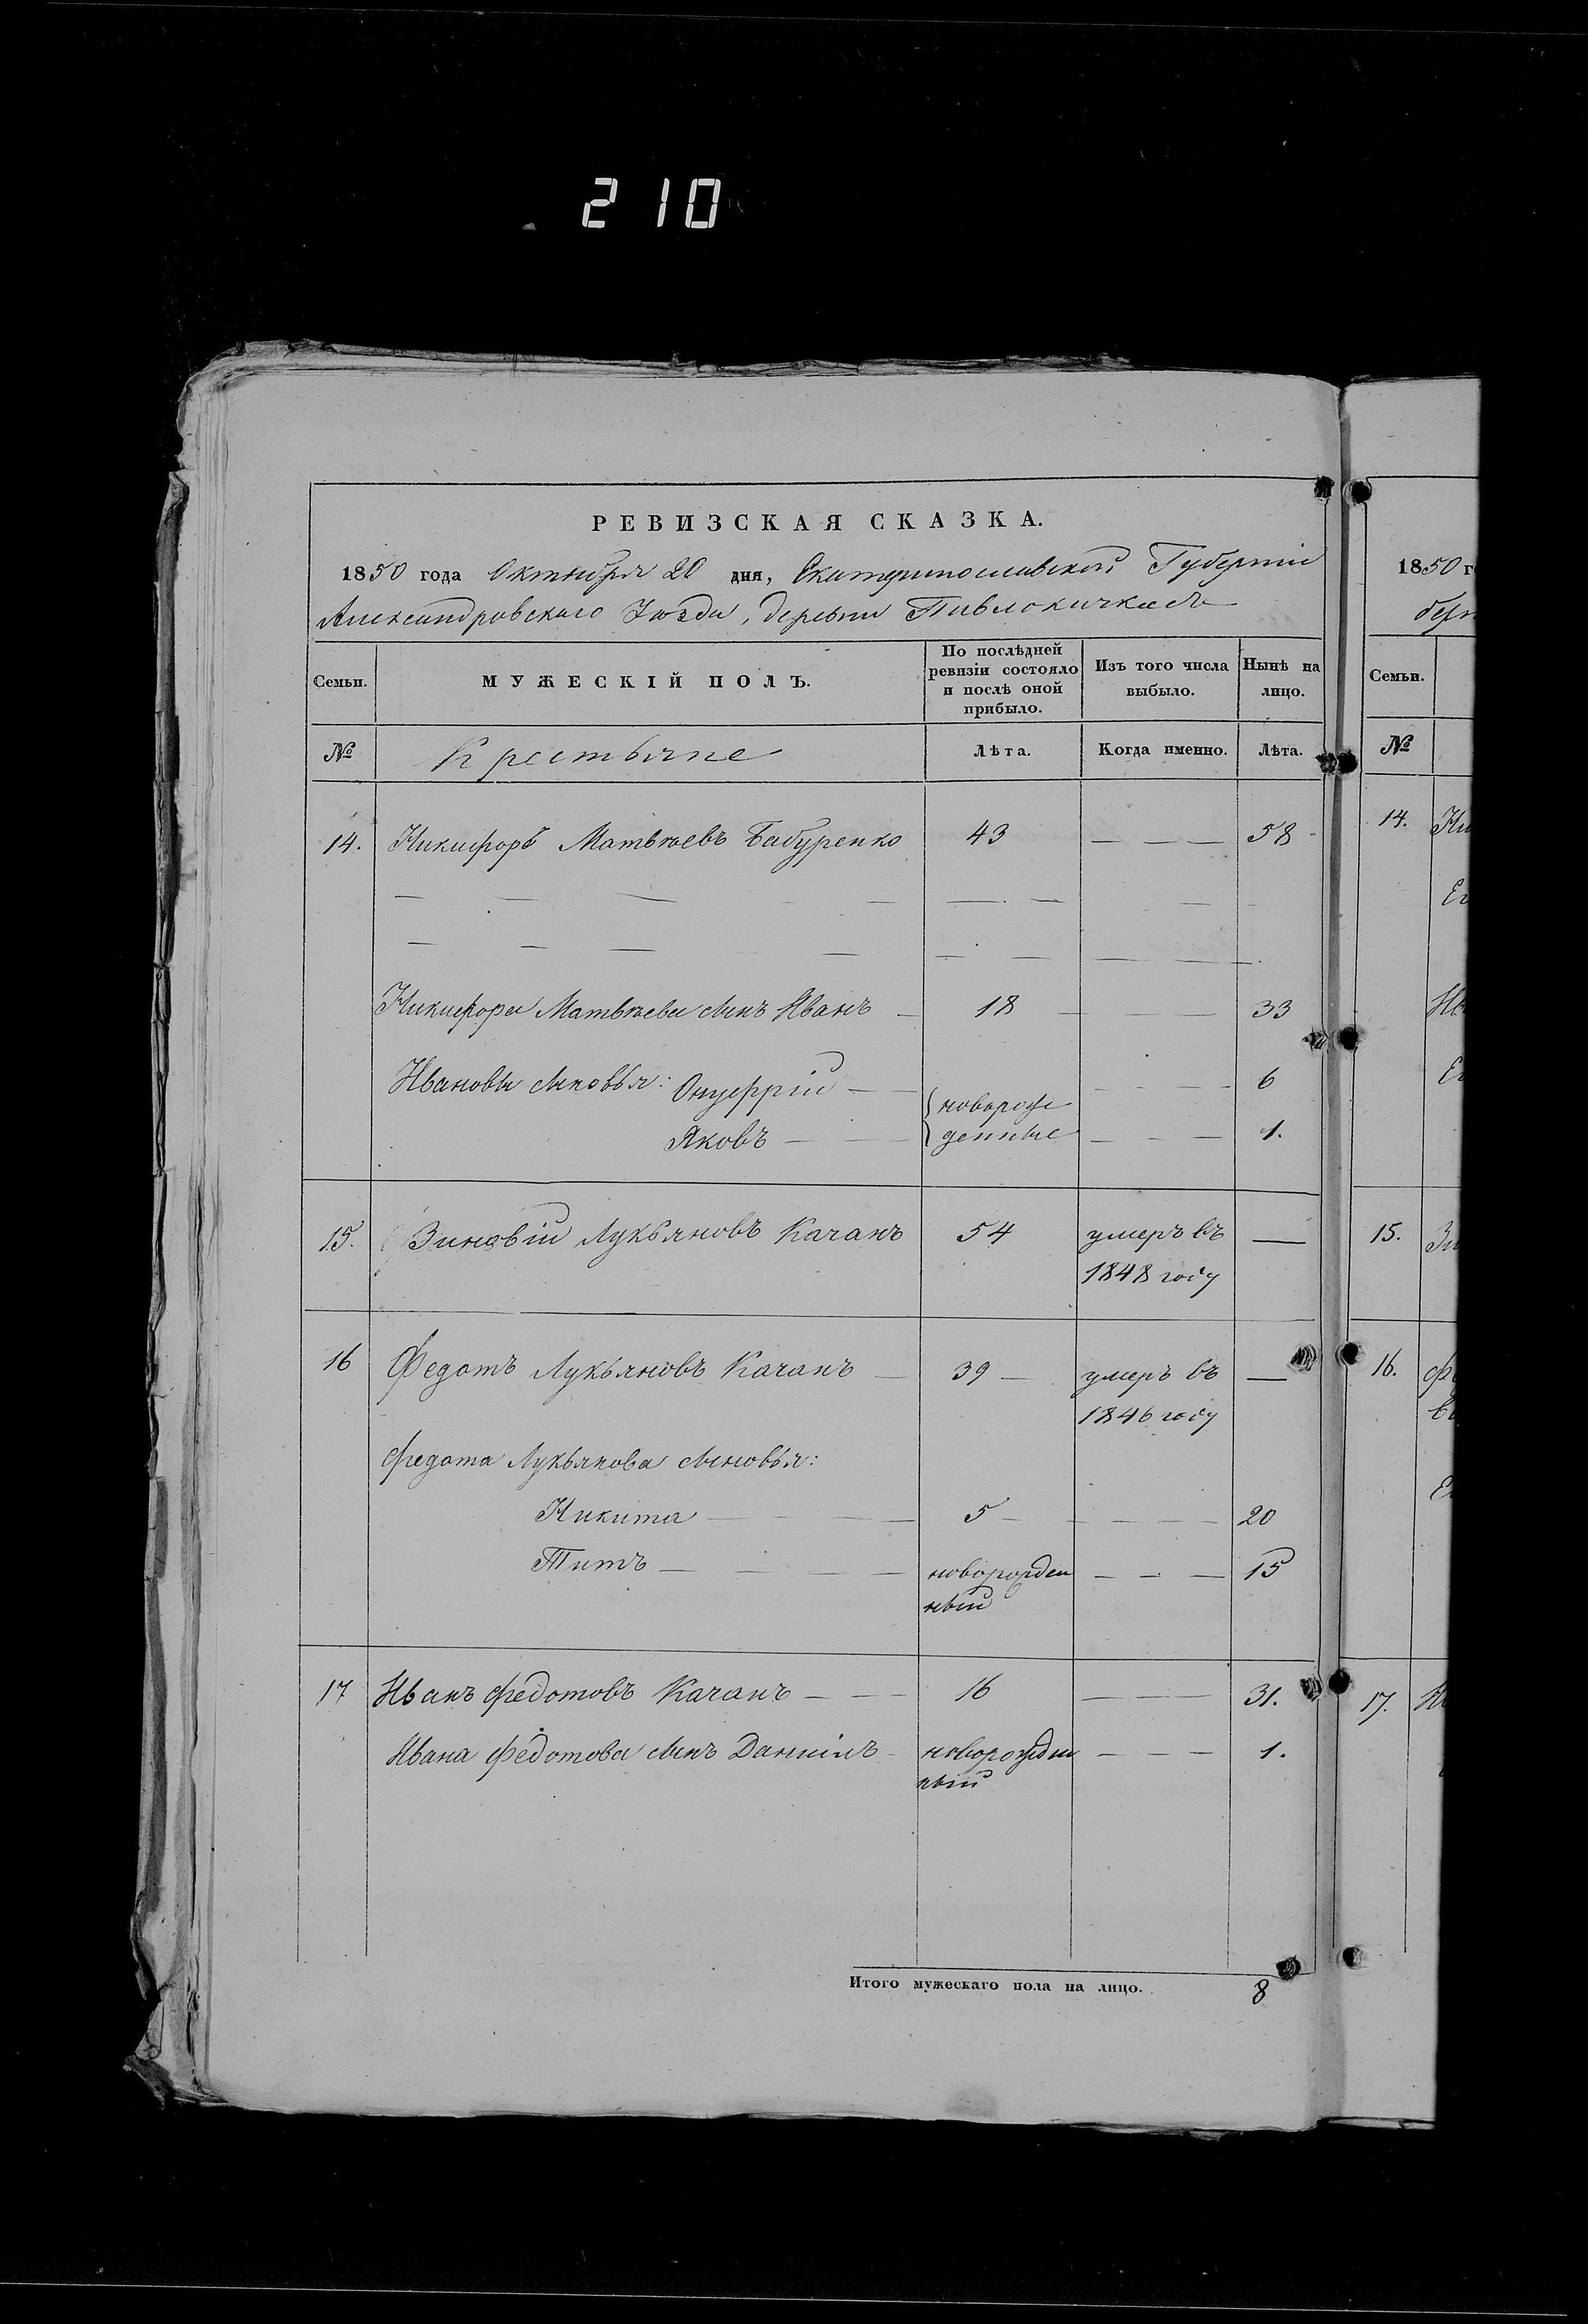 210
РЕВИЗСКАЯ СКАЗКА.
1850 года Октября 20 дня, Екатеринославской Губерніи
Александровскаго Уѣзда, деревни Павлокичкасъ
Семьи. МУЖЕСКІЙ ПОЛЪ. По послѣдней ревизіи состояло и послѣ оной прибыло. Изъ того числа выбыло. Нынѣ на лицо.
№ Крестьяне Лѣта. Когда именно. Лѣта.
14. Никифоръ Матвѣевъ Бабуренко 43 — — — 58
Никифора Матвѣева сынъ Иванъ — 18 — — 33
Ивановы сыновья: Онуфрій — новорож — — — 6
Яковъ — — денные — — — 1.
15. Зиновій Лукьяновъ Качанъ 54 умеръ въ —
1848 году
16 Федотъ Лукьяновъ Качанъ — 39 — умеръ въ —
1846 году
Федота Лукьянова сыновья:
Никита — — — 5 — — — — 20
Титъ — — — — новорожден — — — 15
ный
17 Иванъ Федотовъ Качанъ — — — 16 — — 31.
Ивана Федотова сынъ Даніилъ — новорожден — — — 1.
ный
Итого мужескаго пола на лицо. 8
1850 г
Семьи.
№
14.
Ег
15.
16.
17.